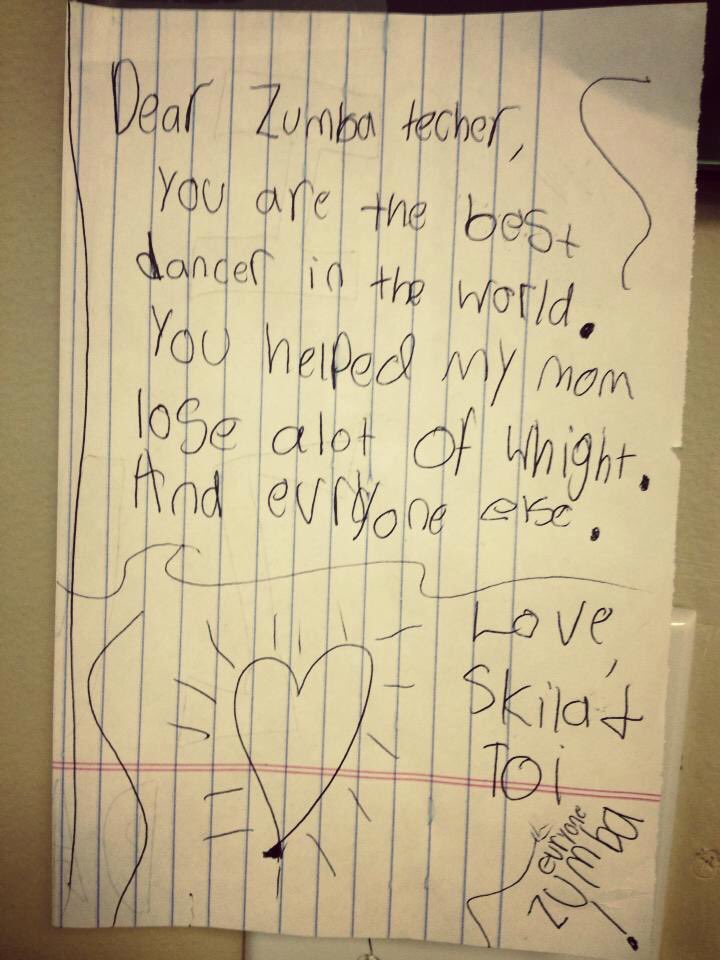 Dear Zumba techer,
You are the best
dancer in the world.
You helped my mom
lose alot of whight.
And evryone else.
Love,
Skila &
Toi
evryone
Zumba!